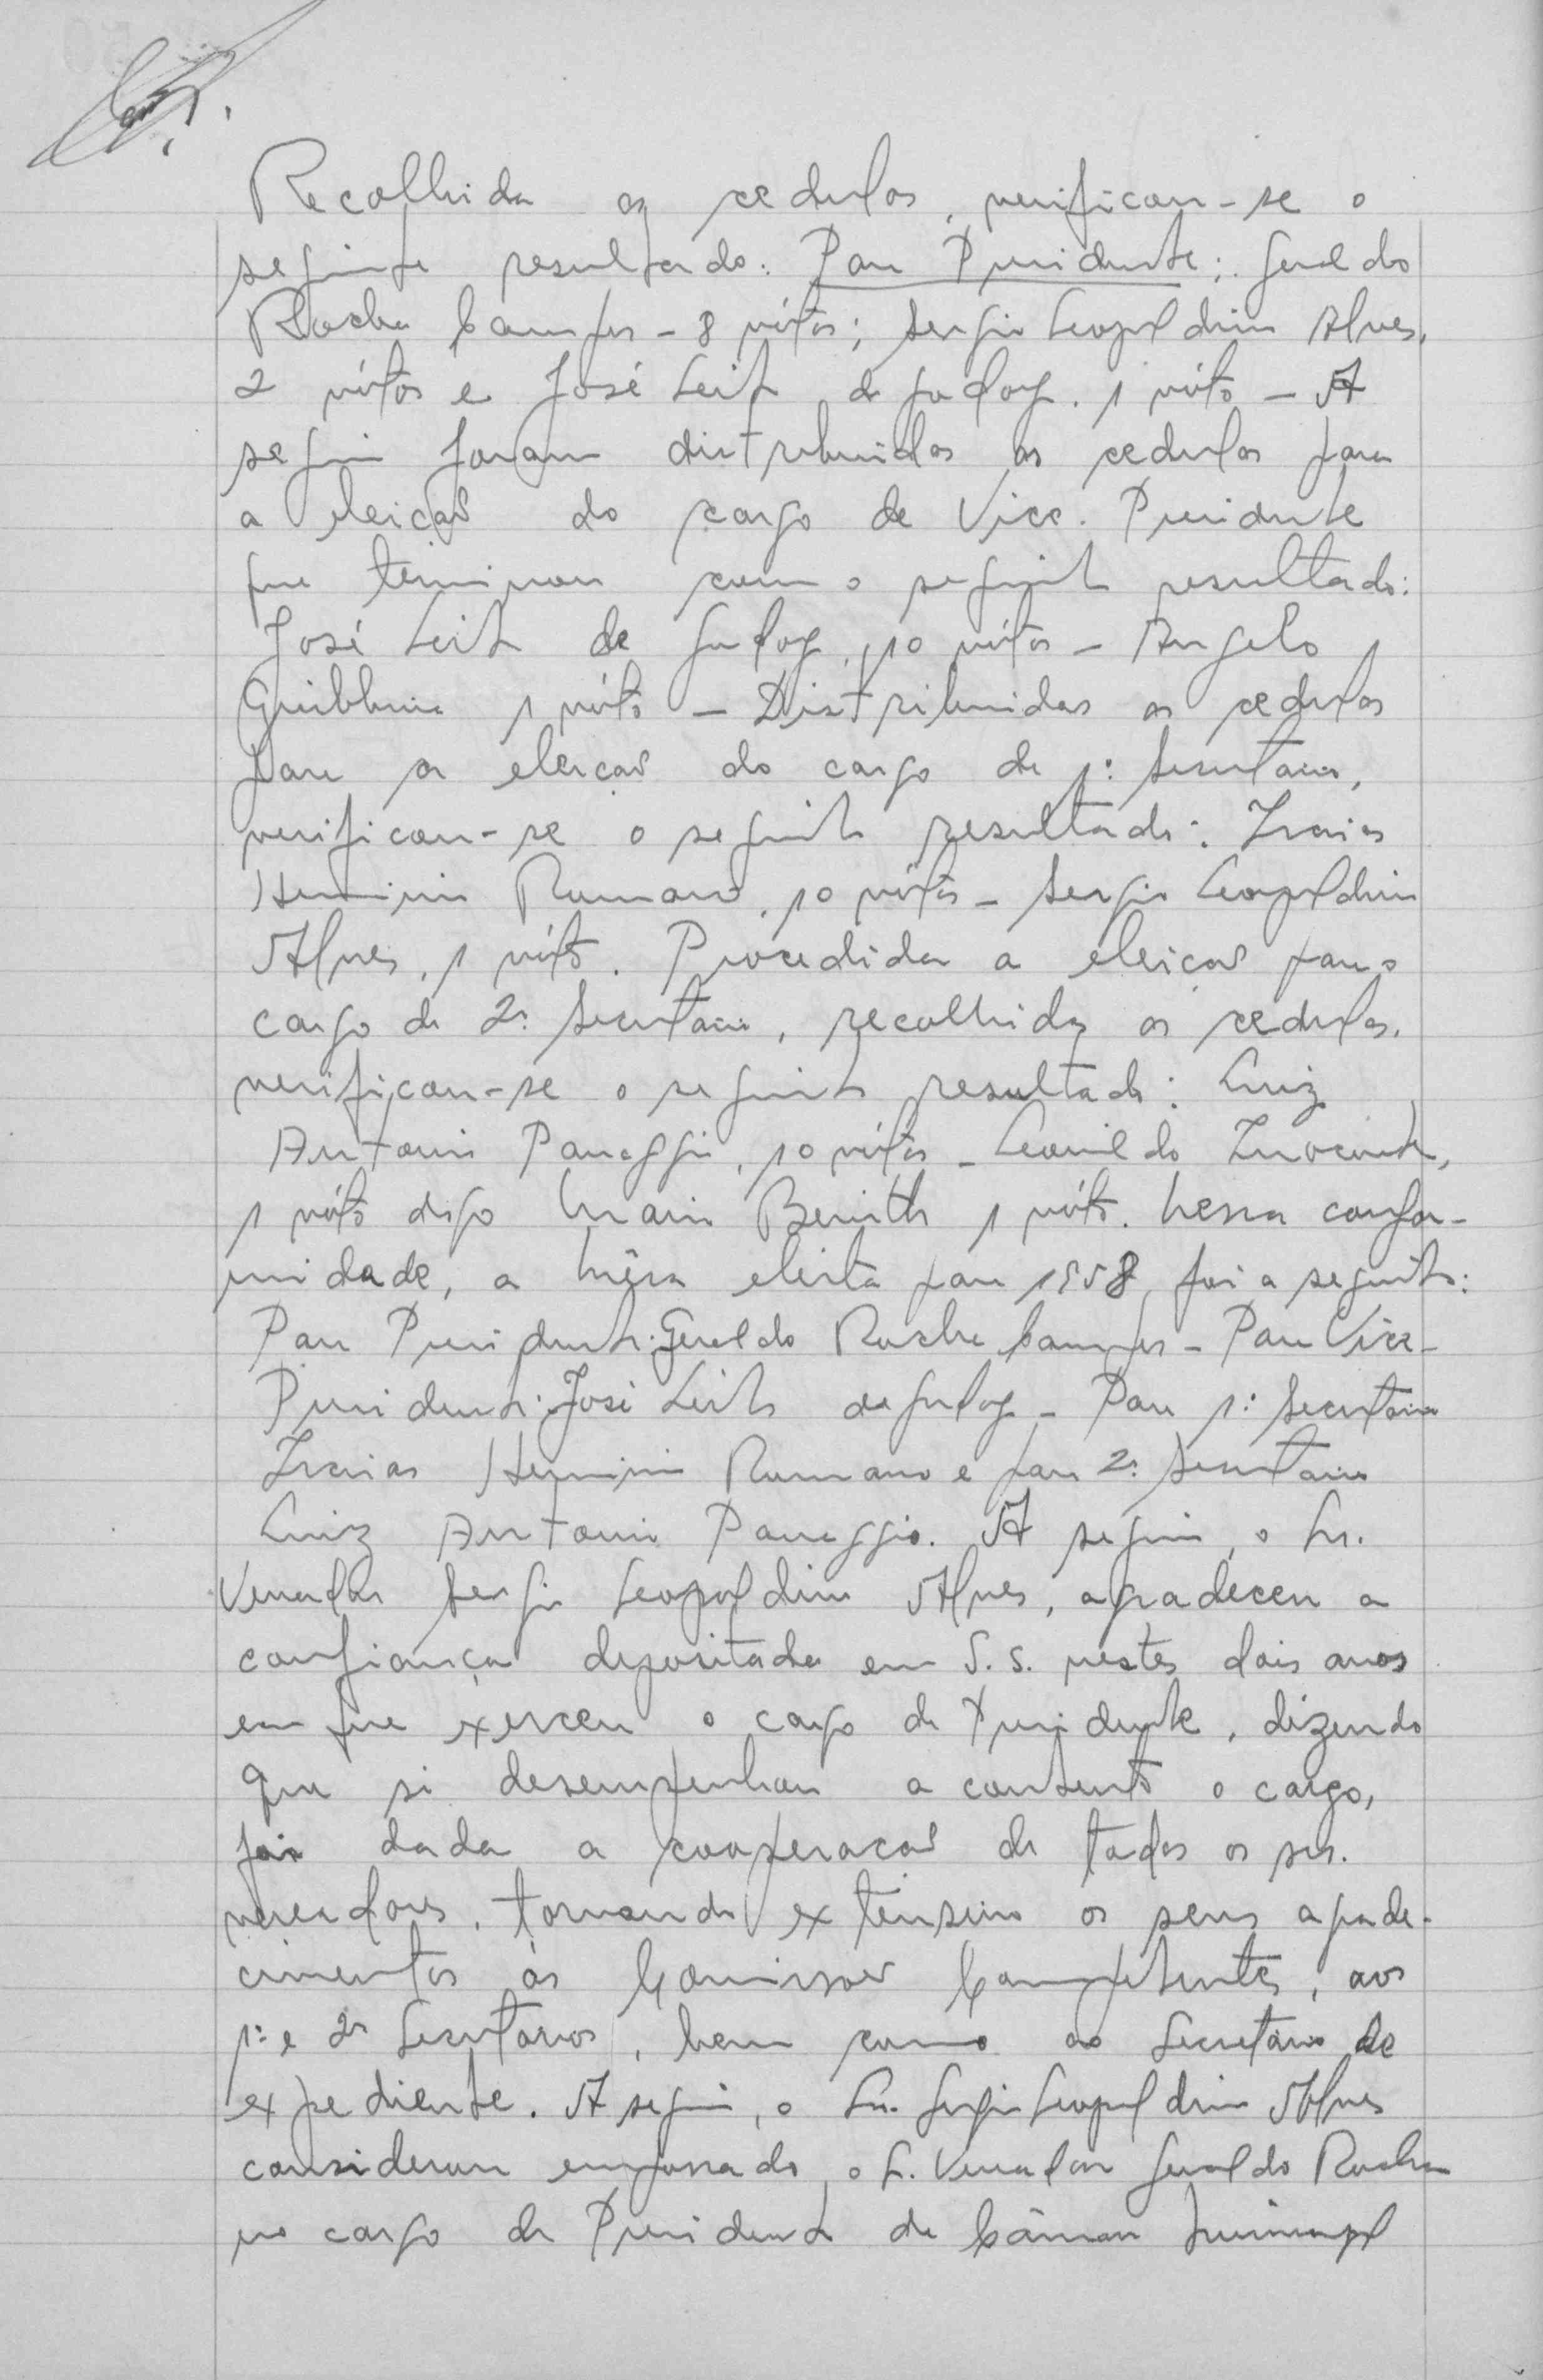 Recolhida as cedulas, verificou-se o
seguinte resultado: Para Presidente: Geraldo
Rocha Campos - 8 vótos; Sergio Leopoldino Alves,
2 vótos e José Leite de Godoy. 1 vóto - A
seguir foram distribuidas as cedulas para
a eleição do cargo de Vice. Presidente
que terminou com o seguinte resultado:
José Leite de Godoy, 10 vótos - Angelo
1 vóto - Distribuidas as cedulas
para a eleição do cargo de 1º Secretario,
verificou-se o seguinte resultado: Izaias
Herminio Romano, 10 vótos - Sergio Leopoldino
Alves, 1 vóto. Procedida a eleição para o
cargo de 2º Secretario, recolhidas as cedulas,
verificou-se o seguinte resultado: Luiz
Antonio Panaggio, 10 vótos - Leonildo Inocente,
1 vóto digo Mario 1 vóto. Nessa confor-
midade, a Mêsa eleita para 1958, foi a seguinte:
Para Presidente: Geraldo Rocha Campos - Para Vice-
Presidente: José Leite de Godoy - Para 1º Secretario
Izaias Herminio Romano e para 2º Secretario
Luiz Antonio Panaggio. A seguir, o Sr.
Vereador Sergio Leopoldino Alves, agradeceu a
confiança depositada em S. S. nestes dois anos
em que exerceu o cargo de Presidente, dizendo
que si desempenhou a contento o cargo,
foi dada a cooperação de todos os srs.
vereadores, tornando extensivo os seus agrade-
cimentos ás Comissões Competentes, aos
1º e 2º Secretarios, bem como ao Secretario de
expediente. A seguir, o Sr. Sergio Leopoldino Alves
considerou empossado o Sr. Vereador Geraldo Rocha
no cargo de Presidente da Câmara Municipal